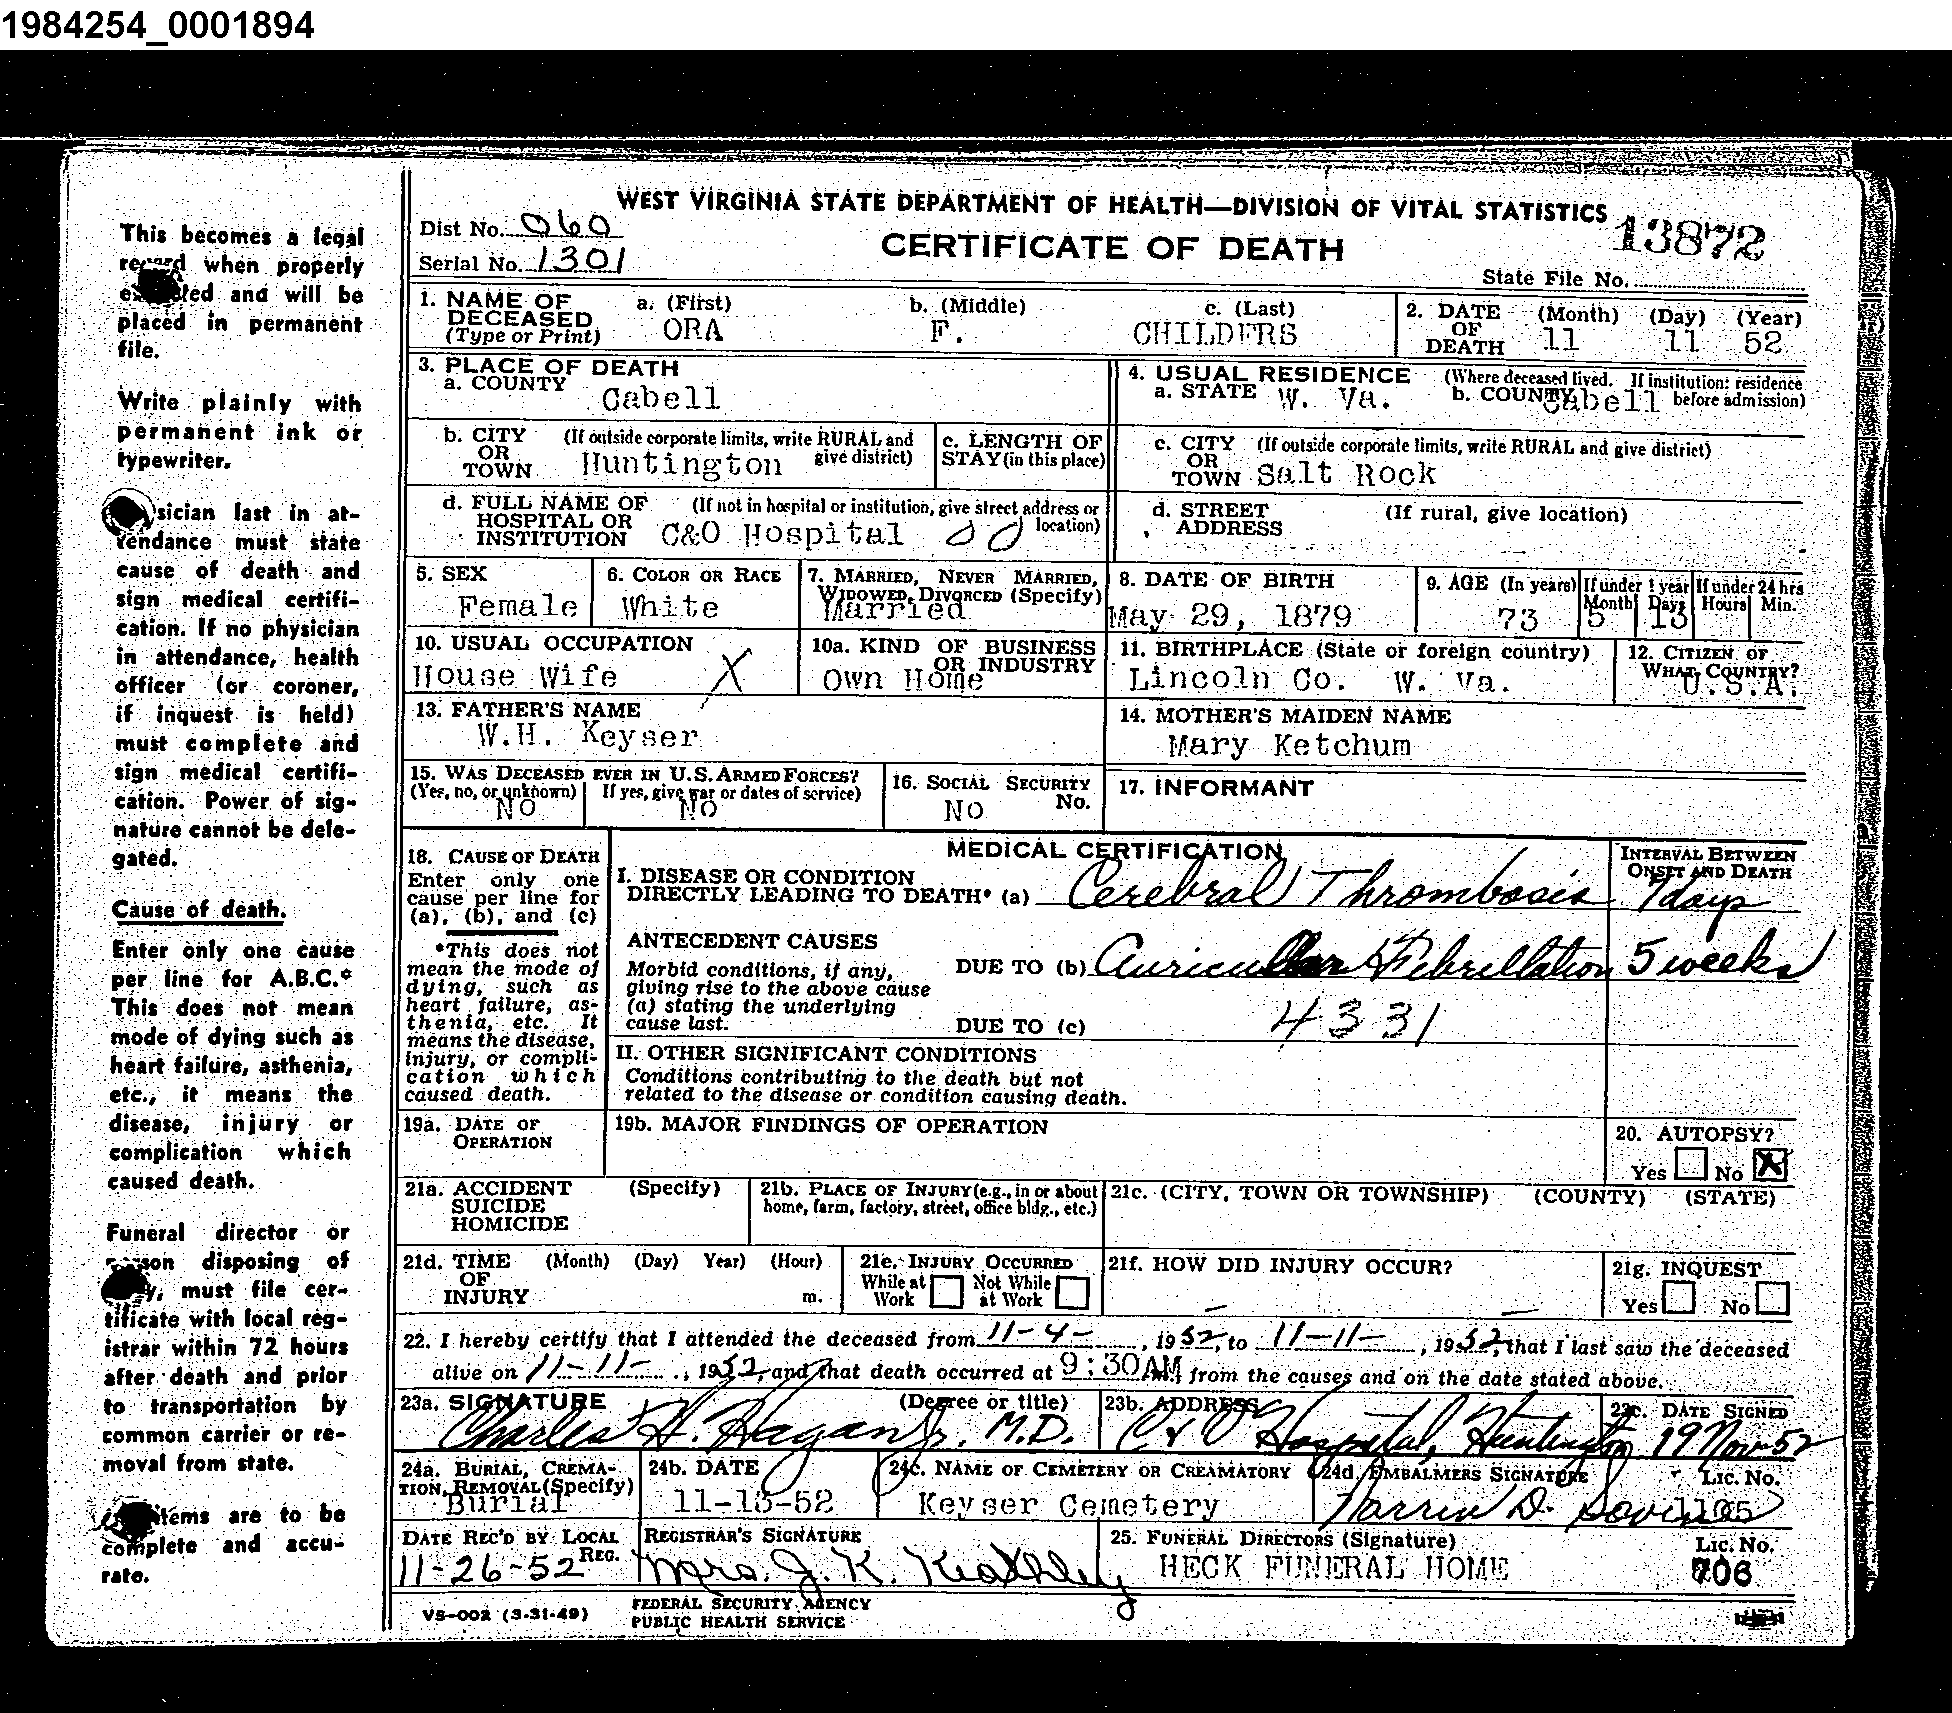 1984254_0001894
WEST VIRGINIA STATE DEPARTMENT OF HEALTH—DIVISION OF VITAL STATISTICS
Dist No. 060
Serial No. 1301
CERTIFICATE OF DEATH
13872
State File No.
This becomes a legal
record when properly
and will be
placed in permanent
file.
Write plainly with
permanent ink or
typewriter.
sician last in at-
tendance must state
cause of death and
sign medical certifi-
cation. If no physician
in attendance, health
officer (or coroner,
if inquest is held)
must complete and
sign medical certifi-
cation. Power of sig-
nature cannot be dele-
gated.
Cause of death.
Enter only one cause
per line for A.B.C.*
This does not mean
mode of dying such as
heart failure, asthenia,
etc., it means the
disease, injury or
complication which
caused death.
Funeral director or
person disposing of
must file cer-
tificate with local reg-
istrar within 72 hours
after death and prior
to transportation by
common carrier or re-
moval from state.
items are to be
complete and accu-
rate.
1. NAME OF DECEASED (Type or Print)
a. (First) ORA
b. (Middle) F.
c. (Last) CHILDERS
2. DATE OF DEATH (Month) 11 (Day) 11 (Year) 52
3. PLACE OF DEATH
a. COUNTY Cabell
4. USUAL RESIDENCE (Where deceased lived. If institution: residence before admission)
a. STATE W. Va. b. COUNTY Cabell
b. CITY OR TOWN (If outside corporate limits, write RURAL and give district) Huntington
c. LENGTH OF STAY (in this place)
c. CITY OR TOWN (If outside corporate limits, write RURAL and give district) Salt Rock
d. FULL NAME OF HOSPITAL OR INSTITUTION (If not in hospital or institution, give street address or location) C&O Hospital
d. STREET ADDRESS (If rural, give location)
5. SEX Female
6. COLOR OR RACE White
7. MARRIED, NEVER MARRIED, WIDOWED, DIVORCED (Specify) Married
8. DATE OF BIRTH May 29, 1879
9. AGE (In years) 73
If under 1 year Month 5 Days 13
If under 24 hrs Hours Min.
10. USUAL OCCUPATION House Wife X
10a. KIND OF BUSINESS OR INDUSTRY Own Home
11. BIRTHPLACE (State or foreign country) Lincoln Co. W. Va.
12. CITIZEN OF WHAT COUNTRY? U.S.A.
13. FATHER'S NAME W.H. Keyser
14. MOTHER'S MAIDEN NAME Mary Ketchum
15. WAS DECEASED EVER IN U.S. ARMED FORCES?
(Yes, no, or unknown) No If yes, give war or dates of service) No
16. SOCIAL SECURITY No. No
17. INFORMANT
18. CAUSE OF DEATH
Enter only one
cause per line for
(a), (b), and (c)
*This does not
mean the mode of
dying, such as
heart failure, as-
thenia, etc. It
means the disease,
injury, or compli-
cation which
caused death.
MEDICAL CERTIFICATION
INTERVAL BETWEEN ONSET AND DEATH
I. DISEASE OR CONDITION
DIRECTLY LEADING TO DEATH* (a) Cerebral Thrombosis 7 days
ANTECEDENT CAUSES
Morbid conditions, if any,
giving rise to the above cause
(a) stating the underlying
cause last.
DUE TO (b) Auricular Fibrillation 5 weeks
DUE TO (c) 4331
II. OTHER SIGNIFICANT CONDITIONS
Conditions contributing to the death but not
related to the disease or condition causing death.
19a. DATE OF OPERATION
19b. MAJOR FINDINGS OF OPERATION
20. AUTOPSY?
Yes No X
21a. ACCIDENT SUICIDE HOMICIDE (Specify)
21b. PLACE OF INJURY (e.g., in or about home, farm, factory, street, office bldg., etc.)
21c. (CITY, TOWN OR TOWNSHIP) (COUNTY) (STATE)
21d. TIME OF INJURY (Month) (Day) Year) (Hour) m.
21e. INJURY OCCURRED While at Work Not While at Work
21f. HOW DID INJURY OCCUR?
21g. INQUEST Yes No
22. I hereby certify that I attended the deceased from 11-4-, 1952, to 11-11-, 1952, that I last saw the deceased
alive on 11-11-, 1952, and that death occurred at 9:30AM from the causes and on the date stated above.
23a. SIGNATURE (Degree or title) Charles H. Hagan Jr. M.D.
23b. ADDRESS C & O Hospital, Huntington
23c. DATE SIGNED 19 Nov 52
24a. BURIAL, CREMATION, REMOVAL (Specify) Burial
24b. DATE 11-13-52
24c. NAME OF CEMETERY OR CREAMATORY Keyser Cemetery
24d. EMBALMERS SIGNATURE Lic. No.
DATE REC'D BY LOCAL REG. 11-26-52
REGISTRAR'S SIGNATURE Mrs. J. K. Keathley
25. FUNERAL DIRECTORS (Signature) HECK FUNERAL HOME
Lic. No. 706
VS-002 (3-31-49)
FEDERAL SECURITY AGENCY
PUBLIC HEALTH SERVICE